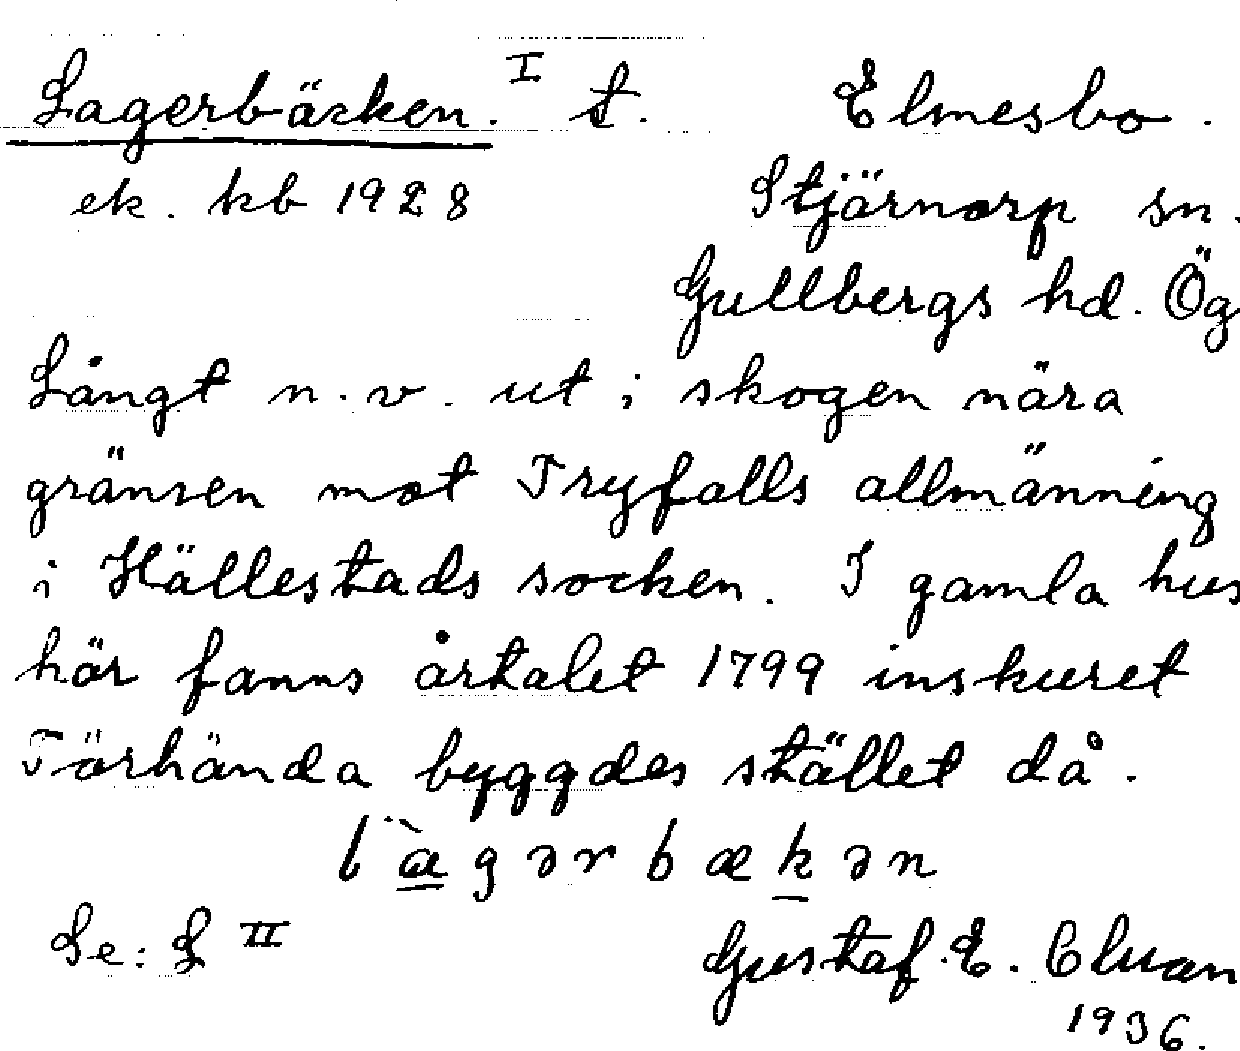 Lagerbäcken. I t. Elmesbo.
ek. kb 1928 Stjärnorp sn.
Gullbergs hd. Ög
Långt n.v. ut i skogen nära
gränsen mot Tryfalls allmänning
i Hällestads socken. I gamla hus
här fanns årtalet 1799 inskuret
Törhända byggdes stället då.
l`a̲gərbæk̲ən
Se: L II Gustaf. E. Cluan
1936.